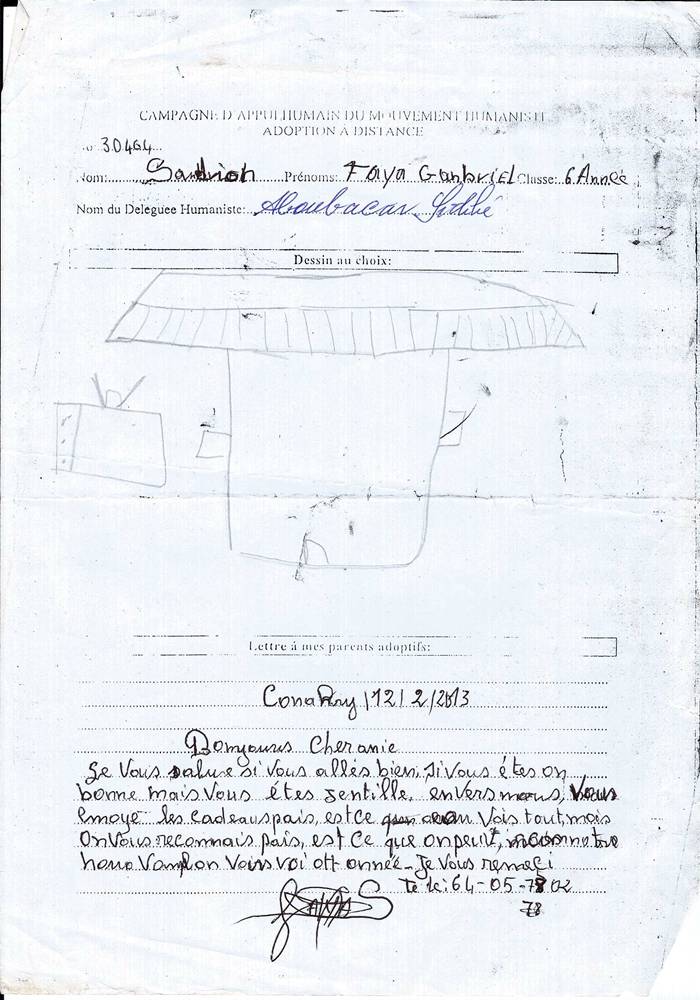 CAMPAGNE D'APPUI HUMAIN DU MOUVEMENT HUMANISTE
ADOPTION A DISTANCE
No 30464
Nom: Prénoms: Faya Ganbriel Classe: 6 Année
Nom du Deleguee Humaniste: Aboubacar
Dessin au choix:
Lettre á mes parents adoptifs:
Conakry | 12 | 2 / 2013
Bonjours Cheramie
Je Vous salue si vous allés bien. Si Vous étes on
bonne mais Vous étes jentille envers nous, Vous
Emoyé les cadeaus pais, est ce Vois tout, mais
On Vous reconnais pais, est Ce que on peut,
Vois voi année - Je Vous remeci
te le: 64-05-78 02
78